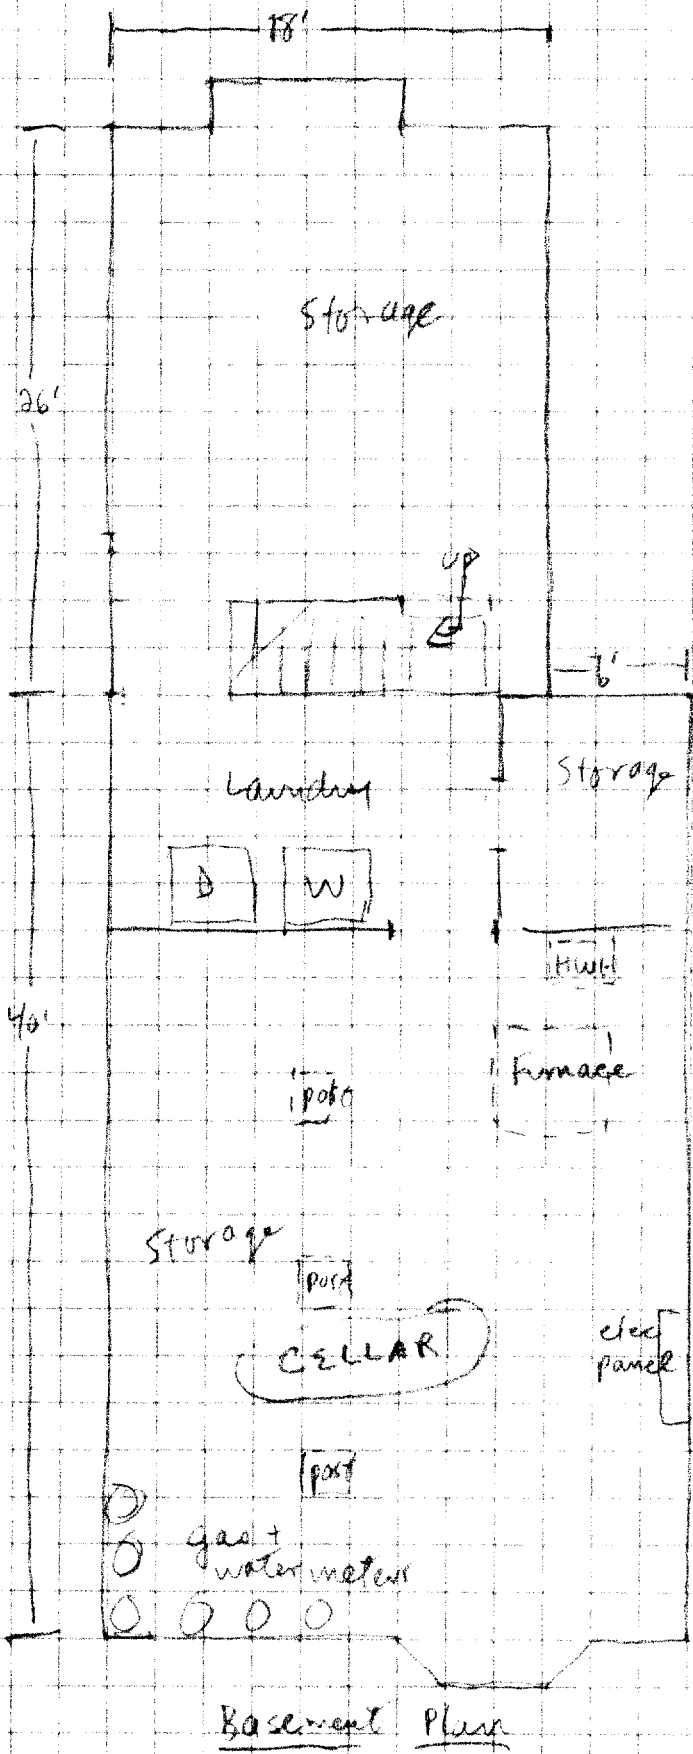 18'
Storage
26'
UP
6'
Laundry
Storage
D
W
HWH
40'
Furnace
post
Storage
post
CELLAR
elec
panel
post
gas +
water meters
Basement Plan